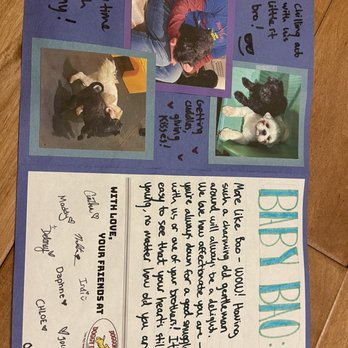 Chilling out
with his
littlest
bro!
Getting
cuddles,
giving
kisses!
time
BABY BAO:
More like Bao-WOW! Having
such a charming old gentleman
around will always be a delight.
We love how affectionate you are -
you're always down for a good snuggle
with us or one of your brothers! It's
easy to see that your heart's still
young, no matter how old you are
WITH LOVE,
YOUR FRIENDS AT
Maddy
Delaney
Indi
Daphne
CHLOE